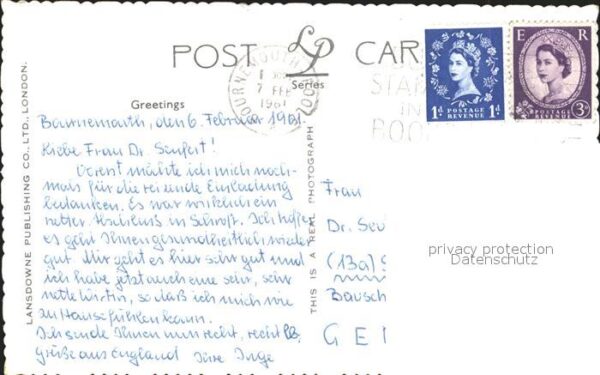 POST LP CARD
Series
Greetings
BOURNEMOUTH POOLE
7 FEB
1961
STAM
IN
BOO
POSTAGE
REVENUE
1d 1d
E R
POSTAGE
REVENUE
3d
Bournemouth, den 6. Februar 1961.
Liebe Frau Dr. Senfert!
Zuerst möchte ich mich noch-
mals für die reizende Einladung
bedanken. Es war wirklich ein
netter Abschluß in Schroft. Ich hoffe,
es geht Ihnen gesundheitlich wieder
gut. Mir geht es hier sehr gut und
ich habe jetzt auch eine sehr, sehr
nette Wirtin, so daß ich mich wie
zu Hause fühlen kann.
Ich sende Ihnen nun recht, recht lb.
Grüße aus England Ihre Inge
LANSDOWNE PUBLISHING CO., LTD., LONDON.
THIS IS A REAL PHOTOGRAPH
Frau
Dr. Sen
(13a)
Bausch
GE
privacy protection
Datenschutz